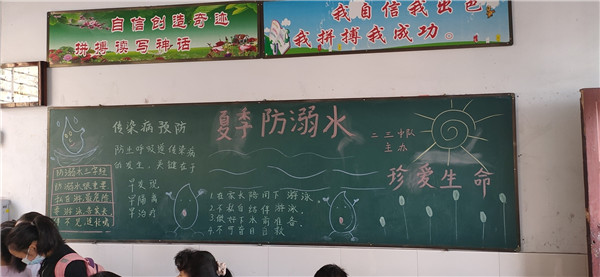 自信创造奇迹
拼搏读写神话
我自信我出色
我拼搏我成功。
夏季防溺水
传染病预防
防止呼吸道传染病
的发生，关键在于
早发现
早隔离
早治疗
防溺水三字经
防溺水很重要
1.在家长陪同下游泳
2.不私自结伴游泳
3.做好下水前准备
4.不可盲目自救
二三中队
主办
珍爱生命